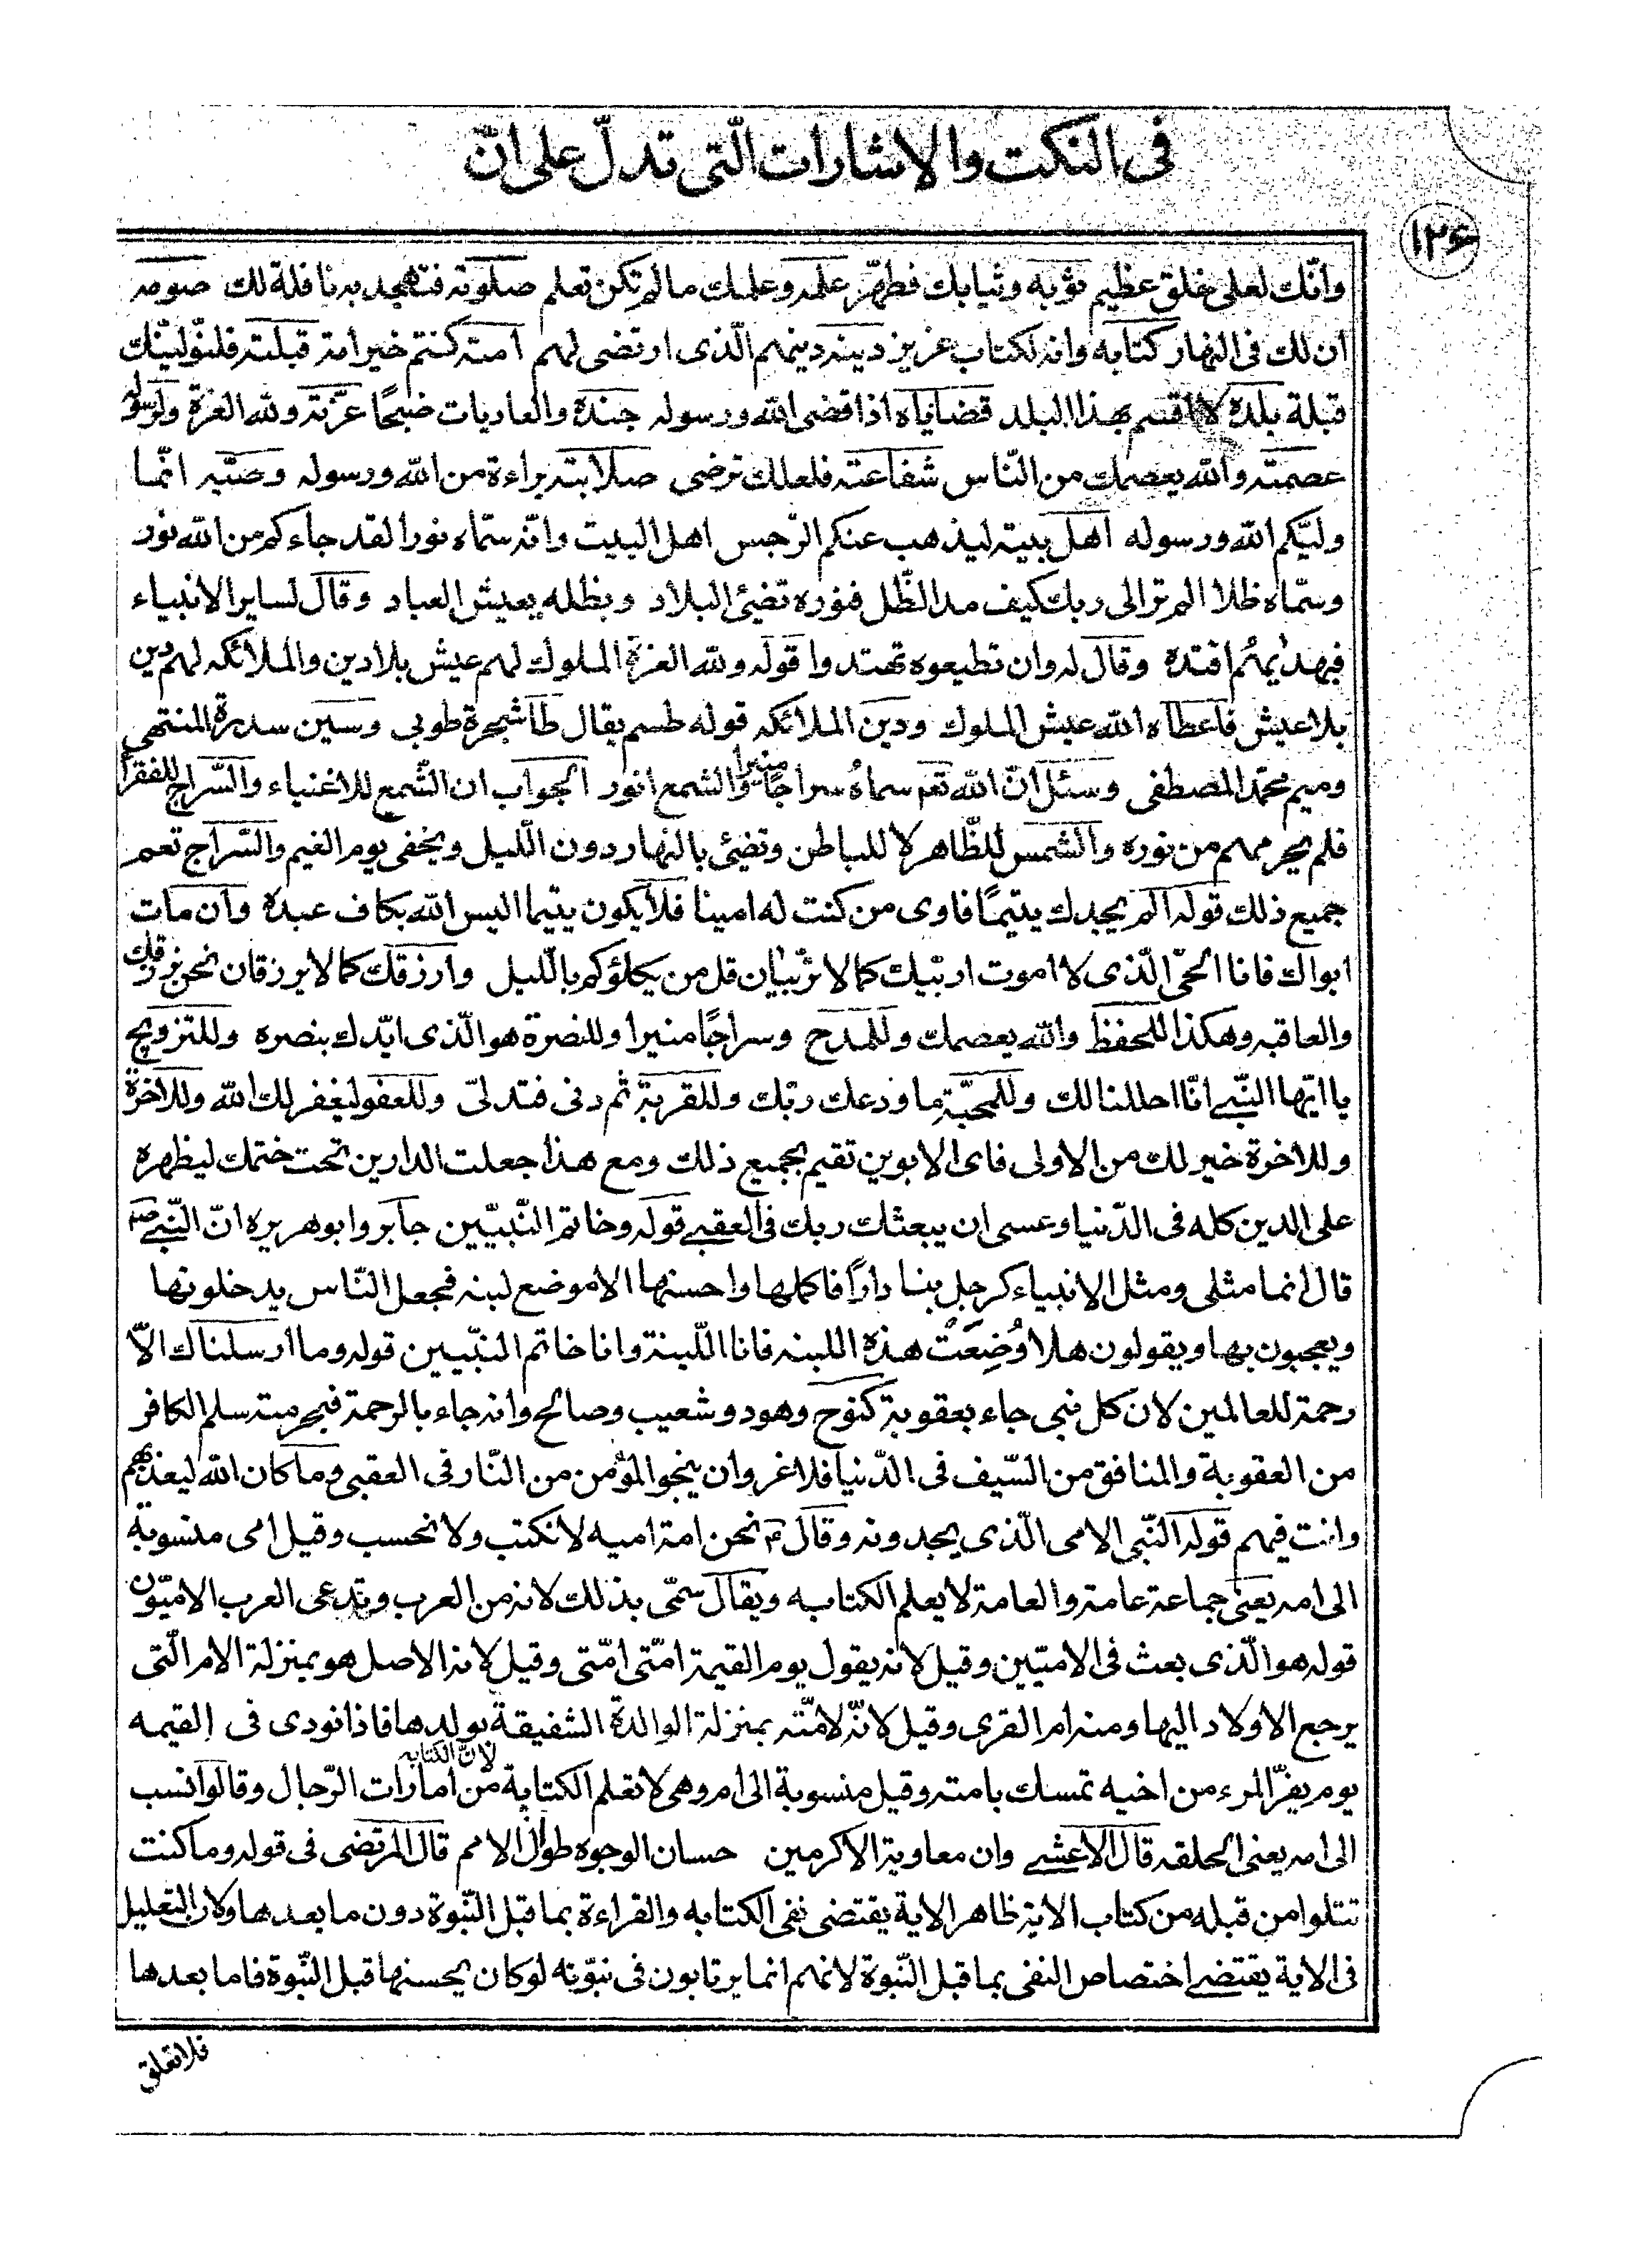 فى النكت والاشارات الّتى تدلّ على انّ
١٢۶
وانّك لعلى خلق عظيم ثوبه وثيابك فطهّر علمه وعلمك مالم تكن تعلم صلوته فتهجد به نافلة لك صومه
ان لك فى النهار كتابه وانه لكتاب عزيز دينه دينهم الّذى ارتضى لهم امته كنتم خير امة قبلته فلنولّينّك
قبلة بلده لا اقسم بهذا البلد قضاياه اذا قضى الله ورسوله جنده والعاديات ضبحًا عزّته ولله العزة ولرسوله
عصمته والله يعصمك من النّاس شفاعته فلعلك ترضى صلابته براءة من الله ورسوله وصيّه انّما
وليّكم الله ورسوله اهل بيته ليذهب عنكم الرّجس اهل البيت وانّه سمّاه نورا لقد جاءكم من الله نور
وسمّاه ظلا الم تر الى ربك كيف مد الظّل فنوره تضئ البلاد وبظله يعيش العباد وقال لساير الانبياء
فبهديٰهُم اقتده وقال له وان تطيعوه تهتدوا قوله ولله العزة الملوك لهم عيش بلا دين والملائكه لهم دين
بلا عيش فاعطاه الله عيش الملوك ودين الملائكه قوله طسم يقال طا شجرة طوبى وسين سدرة المنتهى
وميم محمّد المصطفى وسئل انّ الله تعم سماهُ سراجًا منيرا والشمع انور الجواب ان الشّمع للاغنياء والسّراج للفقرا
فلم يحرمهم من نوره والشمس للظّاهر لا للباطن وتضئ بالنهار دون اللّيل ويخفى يوم الغيم والسّراج تعم
جميع ذلك قوله الم يجدك يتيمًا فاوى من كنت له امينا فلا يكون يتيما اليس الله بكاف عبده وان مات
ابواك فانا الحىّ الّذى لا اموت اربّيك كما لا تربّيان قل من يكلؤكم باللّيل وارزقك كما لا يرزقان نحن نرزقك
والعاقبه وهكذا للحفظ والله يعصمك وللمدح وسراجًا منيرا وللنصرة هو الّذى ايّدك بنصره وللتزويج
يا ايّها النّبى انّا احللنا لك وللمحبّة ما ودعك ربّك وللقربة ثم دنى فتدلىّ وللعفو ليغفر لك الله وللاخرة
وللاخرة خير لك من الاولى فاى الابوين تقيم بجميع ذلك ومع هذا جعلت الدارين تحت ختمك ليظهره
على الدين كله فى الدّنيا وعسى ان يبعثك ربك فى العقبى قوله وخاتم النّبيّين جابر وابو هريره انّ النّبى صم
قال انما مثلى ومثل الانبياء كرجل بنا دارًا فاكملها واحسنها الا موضع لبنه فجعل النّاس يدخلونها
ويعجبون بها ويقولون هلا وُضِعَتْ هذه اللبنه فانا اللّبنة وانا خاتم النبّيين قوله وما ارسلناك الاّ
رحمة للعالمين لان كل نبى جاء بعقوبة كنوح وهود وشعيب وصالح وانه جاء بالرحمة فبحرمته سلم الكافر
من العقوبة والمنافق من السّيف فى الدّنيا فلا غرو ان ينجو المؤمن من النّار فى العقبى وما كان الله ليعذبهم
وانت فيهم قوله النّبى الامى الّذى يجدونه وقال ع نحن امة اميه لا نكتب ولا نحسب وقيل امى منسوبة
الى امه يعنى جماعة عامة والعامة لا يعلم الكتابه ويقال سمّى بذلك لانه من العرب وتدعى العرب الاميّون
قوله هو الّذى بعث فى الاميّين وقيل لانه يقول يوم القيمة امّتى امّتى وقيل لانه الاصل هو بمنزلة الام الّتى
يرجع الاولاد اليها ومنه ام القرى وقيل لانّه لامّته بمنزلة الوالدة الشفيقة بولدها فاذا نودى فى القيمه
يوم يفرّ المرء من اخيه تمسك بامته وقيل منسوبة الى ام وهى لا تعلم الكتابة لانّ الكتابه من امارات الرّجال وقالوا نسب
الى امه يعنى الحلقه قال الاعشى وان معاوية الاكرمين حسان الوجوه طوال الامم قال المرتضى فى قوله وما كنت
تتلوا من قبله من كتاب الاية ظاهر الاية يقتضى نفى الكتابه والقراءة بما قبل النّبوة دون ما بعدها ولان التعليل
فى الاية يقتضى اختصاص النفى بما قبل النّبوة لانهم انما يرتابون فى نبوّته لو كان يحسنها قبل النّبوة فاما بعدها
فلا تعلق